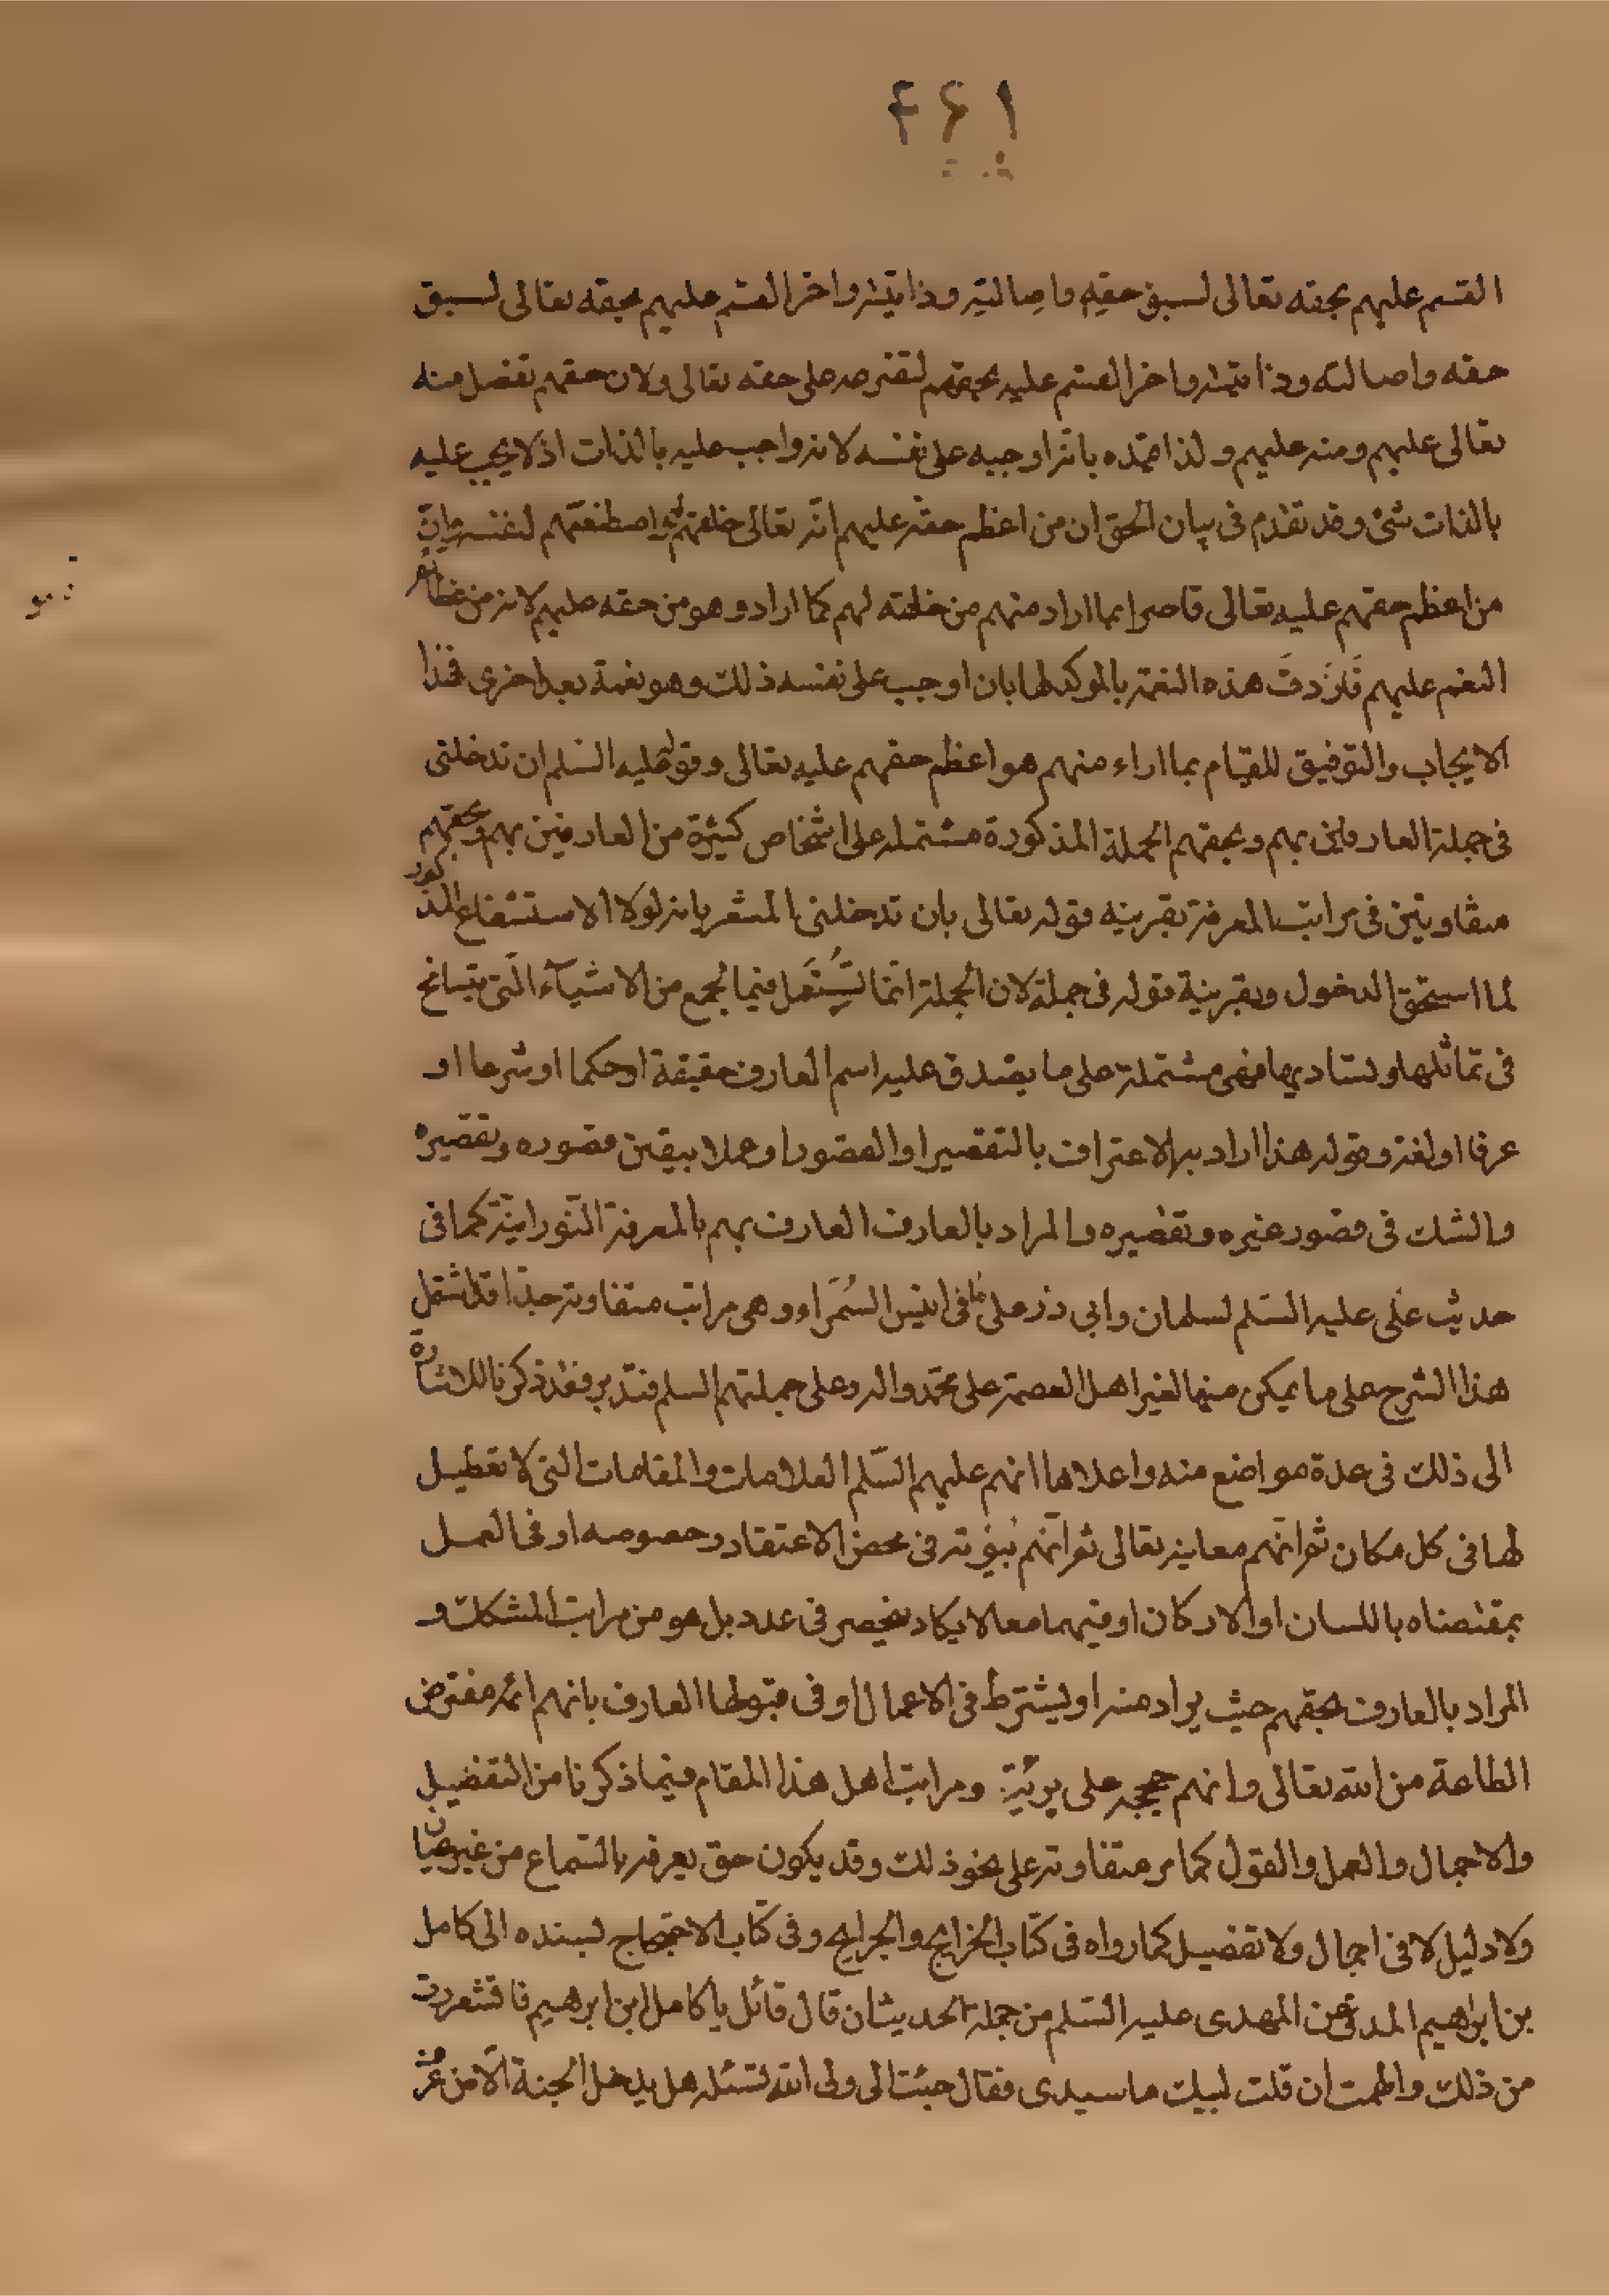 ۴۶۱
القسم عليهم بحقه تعالى لسبق حقه واصالته وذاتيته واخر القسم عليهم بحقه تعالى لسبق
حقه واصالته وذاتيته واخر القسم عليه بحقهم لتفرعه على حقه تعالى ولان حقهم تفضل منه
تعالى عليهم ومنه عليهم ولذا قيده بانه اوجبه على نفسه لا نه واجب عليه بالذات اذ لا يجب عليه
بالذات شئ وقد تقدم فى بيان الحق ان من اعظم حقه عليهم انه تعالى خلقهم له اصطنعهم لنفسه وان
من اعظم حقهم عليه تعالى قاموا بما اراد منهم من خلقته لهم كما اراد وهو من حقه عليهم لانه من عظائم
النعم عليهم فاردف هذه النعمة بالموكد لها بان اوجب على نفسه ذلك وهو نعمة بعد اخرى فهذا
الايجاب والتوفيق للقيام بما اراد منهم هو اعظم حقهم عليه تعالى وقوله عليه السلم ان تدخلنى
فى جملة العارفين بهم وبحقهم الجملة المذكورة مشتملة على اشخاص كثيرة من العارفين بهم وبحقهم
متفاوتين فى مراتب المعرفة بقرينه قوله تعالى بان تدخلنى المشعر بانه لولا الاستشفاع المذكور
لما استحق الدخول وبقرينة قوله فى جملة لان الجملة انما تستعمل فيما لجمع من الاشياء التى يتسامح
فى تماثلها وتساويها فهى مشتملة على ما يصدق عليه اسم العارف حقيقة او حكما او شرعا او
عرفا او لغة وقوله هذا اراد به الاعتراف بالتقصير او القصور او عملا بيقين قصوره وتقصيره
والشك فى قصور غيره وتقصيره والمراد بالعارف العارف بهم بالمعرفة النورانية كما فى
حديث على عليه السلم لسلمان وابى ذر على ما فى انيس السمراء وهى مراتب متفاوتة جدا قد اشتمل
هذا الشرح على ما يمكن منها لغير اهل العصمة على محمد واله وعلى جملتهم السلم فتدبر فقد ذكرنا للاشارة
الى ذلك فى عدة مواضع منه واعلاها انهم عليهم السلم العلامات والمقامات التى لا تعطيل
لها فى كل مكان ثم انهم معانيه تعالى ثم انهم بيوته فى محض الاعتقاد وخصوصه او فى العمل
بمقتضاه باللسان او الاركان او فيهما معا لا يكاد ينحصر فى عدد بل هو من مراتب المشكك و
المراد بالعارف بحقهم حيث يراد منه او يشترط فى الاعمال او فى قبولها العارف بانهم ائمة مفترض
الطاعة من الله تعالى وانهم حججه على بريته ومراتب اهل هذا المقام فيما ذكرنا من التفضيل
والاجمال والعمل والقول كما مر متفاوتة على نحو ذلك وقد يكون حق يعرفه بالسماع من غير عيان
ولا دليل لا فى اجمال ولا تفصيل كما رواه فى كتاب الخرايج والجرايح وفى كتاب الاحتجاج بسنده الى كامل
بن ابراهيم المدنى عن المهدى عليه السلم من جملة الحديث ان قال قائل يا كامل ابن ابراهيم فاقشعررت
من ذلك والهمت ان قلت لبيك يا سيدى فقال جئت الى ولى الله تسئله هل يدخل الجنة الا من عرف